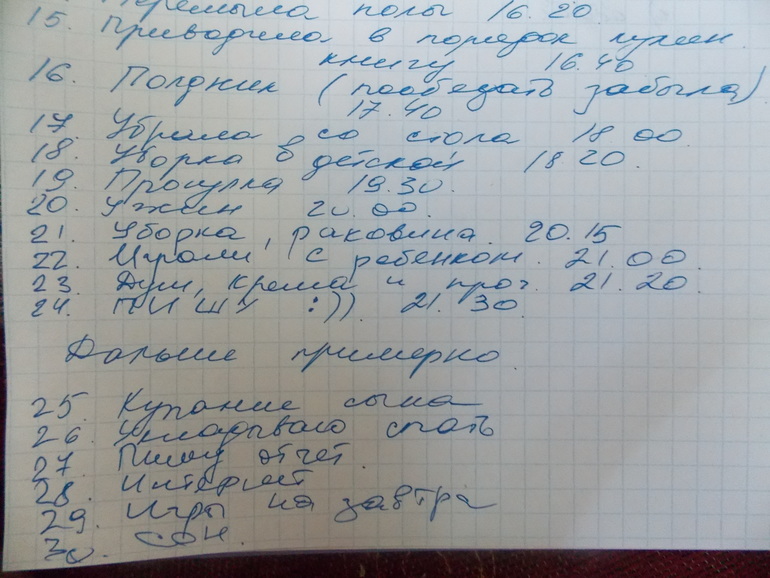 Перемыла полы 16.20
15. Приводила в порядок кулин.
книгу 16.40
16. Полдник (пообедать забыла)
17.40
17. Убрала со стола 18.00.
18. Уборка в детской 18.20.
19. Прогулка 19.30.
20. Ужин 20.00.
21. Уборка, раковина. 20.15
22. Играли с ребенком. 21.00.
23. Душ, крема и проч. 21.20.
24. ПИШУ :)). 21.30.
Дальше примерно
25. Купание сына
26. Укладываю спать
27. Пишу отчет.
28. Интернет
29. Игры на завтра
30. СОН.